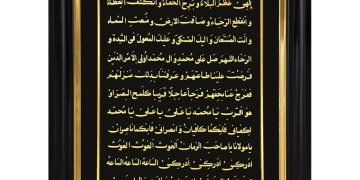 إلهي عظم البلاء وبرح الخفاء وانكشف الغطاء
وانقطع الرجاء وضاقت الارض ومنعت السماء
وأنت المستعان وإليك المشتكى وعليك المعول في الشدة و
الرخاء اللهم صل على محمد وآل محمد أولي الأمر الذين
فرضت علينا طاعتهم وعرفتنا بذلك منزلتهم
ففرج عنا بحقهم فرجا عاجلا قريبا كلمح البصر او
هو أقرب يا محمد يا علي يا علي يا محمد
إكفياني فإنكما كافيان وانصراني فإنكما ناصران
يا مولانا يا صاحب الزمان الغوث الغوث الغوث
أدركني أدركني أدركني الساعة الساعة الساعة